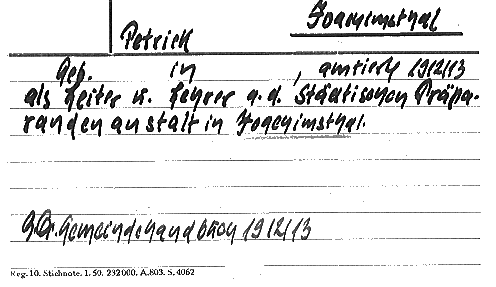 Joachimsthal
Petrick
Geb. in , amtiert 1912/13
als Leiter u. Lehrer a. d. Städtischen Präpa-
randenanstalt in Joachimsthal.
Gemeindehandbuch 1912/13
Reg. 10. Stichnote. 1. 50. 232000. A.803. S. 4062